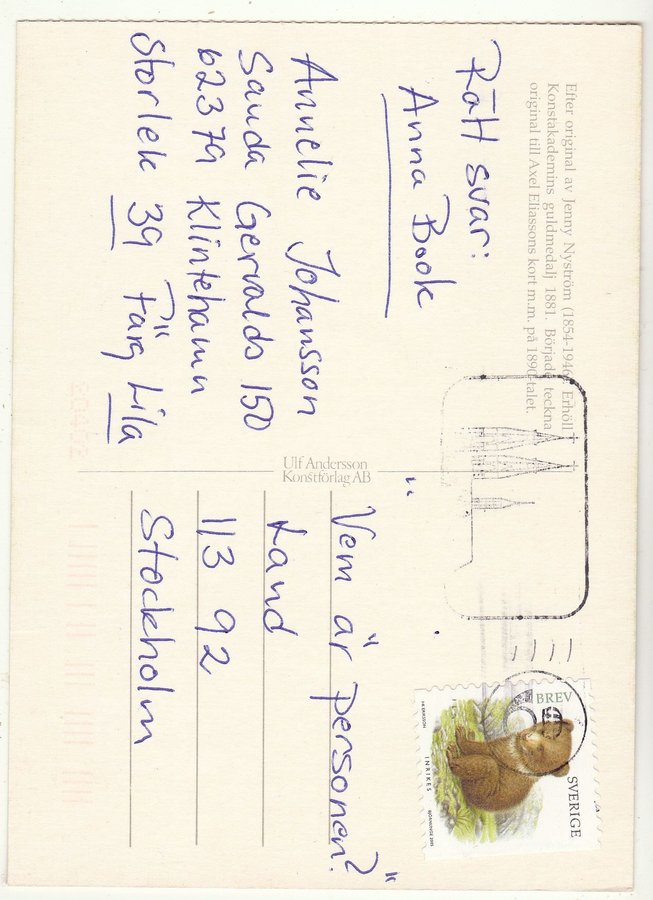 Efter original av Jenny Nyström (1854-1946). Erhöll
Konstakademins guldmedalj 1881. Började teckna
original till Axel Eliassons kort m.m. på 1890-talet.
Rätt svar:
Anna Book
Annelie Johansson
Sanda Gervalds 150
62379 Klintehamn
Storlek 39 Färg Lila
Ulf Andersson
Konstförlag AB
"Vem är personen?"
Land
113 92
Stockholm
BREV
SVERIGE
INRIKES